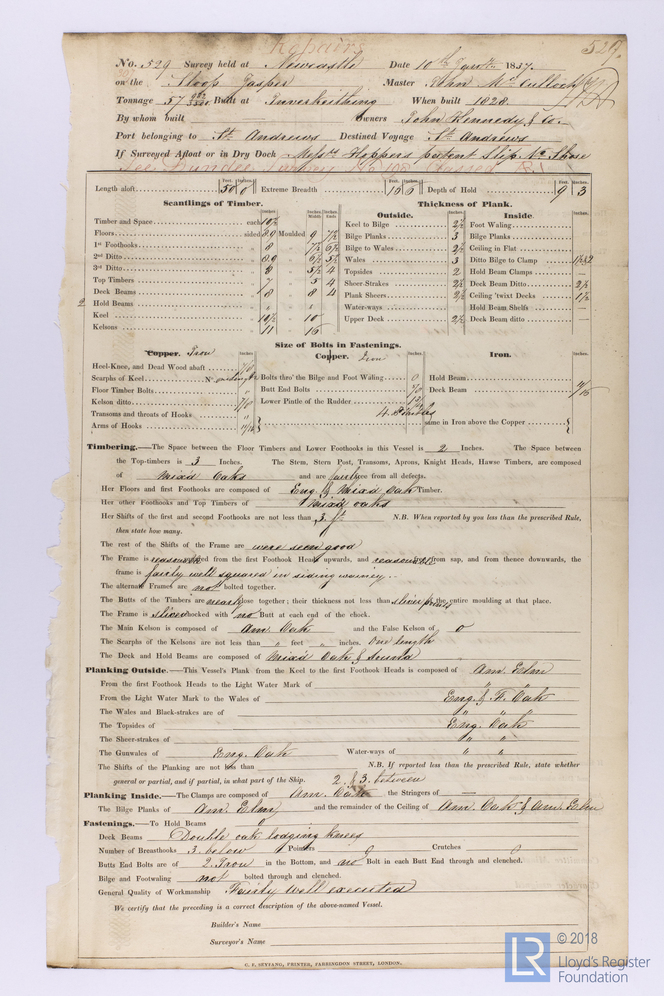 Repairs
529.
No. 529 Survey held at Newcastle Date 10th 1837.
on the Sloop Jasper Master John McCulloch
Tonnage 57 Built at Inverkeithing When built 1828.
By whom built Owners John Kennedy & Co.
Port belonging to St. Andrews Destined Voyage St. Andrews
If Surveyed Afloat or in Dry Dock Messrs Hoppers patent Slip No. Shore
See Dundee
Feet. Inches. Feet. Inches. Feet. Inches.
Length aloft 50 0 Extreme Breadth 16 6 Depth of Hold 9 3
Scantlings of Timber.
Inches. Inches Middle Inches Ends
Timber and Space each 10½
Floors sided 8.9 Moulded 9 7½
1st Foothooks „ 8 „ 7½ 6½
2nd Ditto „ 8.9 „ 6½ 5½
3rd Ditto „ 8 „ 5½ 4
Top Timbers „ 7 „ 5 4
Deck Beams „ 8 „ 8 4
Hold Beams
Keel „ 10½ „ 10
Kelsons „ 11 „ 15
Thickness of Plank.
Outside. Inches.
Keel to Bilge 2½
Bilge Planks 3
Bilge to Wales 2½
Wales 3
Topsides 2
Sheer-Strakes 2½
Plank Sheers 2½
Water-ways
Upper Deck 2½
Inside. Inches.
Foot Waling
Bilge Planks
Ceiling in Flat
Ditto Bilge to Clamp
Hold Beam Clamps —
Deck Beam Ditto 2½
Ceiling 'twixt Decks 1½
Hold Beam Shelfs —
Deck Beam ditto —
Size of Bolts in Fastenings.
Copper. Iron Inches. Copper. Iron Inches. Iron. Inches.
Heel-Knee, and Dead Wood abaft
Scarphs of Keel No. Bolts thro' the Bilge and Foot Waling 0 Hold Beam
Floor Timber Bolts Butt End Bolts Deck Beam
Kelson ditto 7/8 Lower Pintle of the Rudder
Transoms and throats of Hooks
Arms of Hooks same in Iron above the Copper
Timbering.—The Space between the Floor Timbers and Lower Foothooks in this Vessel is 2 Inches. The Space between
the Top-timbers is 3 Inches. The Stem, Stern Post, Transoms, Aprons, Knight Heads, Hawse Timbers, are composed
of Mixd Oaks and are fairly free from all defects.
Her Floors and first Foothooks are composed of Eng. & Mixd Oak Timber.
Her other Foothooks and Top Timbers of Mixd oaks
Her Shifts of the first and second Foothooks are not less than 3 ft N.B. When reported by you less than the prescribed Rule,
then state how many.
The rest of the Shifts of the Frame are were seen good
The Frame is squared from the first Foothook Heads upwards, and free from sap, and from thence downwards, the
frame is fairly well squared in siding wainey..
The alternate Frames are not bolted together.
The Butts of the Timbers are nearly close together; their thickness not less than the entire moulding at that place.
The Frame is sliced chocked with no Butt at each end of the chock.
The Main Kelson is composed of Am. Oak and the False Kelson of 0
The Scarphs of the Kelsons are not less than „ feet „ inches. One length
The Deck and Hold Beams are composed of Mixd Oak &
Planking Outside.—This Vessel's Plank from the Keel to the first Foothook Heads is composed of Am. Elm
From the first Foothook Heads to the Light Water Mark of „ „
From the Light Water Mark to the Wales of Eng. & F. Oak
The Wales and Black-strakes are of „ „ „
The Topsides of Eng. Oak
The Sheer-strakes of „ „
The Gunwales of Eng. Oak Water-ways of „ „
The Shifts of the Planking are not less than N.B. If reported less than the prescribed Rule, state whether
general or partial, and if partial, in what part of the Ship. 2 & 3 between
Planking Inside.—The Clamps are composed of Am. Oak the Stringers of —
The Bilge Planks of Am. Elm and the remainder of the Ceiling of Am. Oak & Am. Elm
Fastenings.—To Hold Beams 0
Deck Beams Double oak lodging knees
Number of Breasthooks 3. below Pointers 0 Crutches 0
Butts End Bolts are of 2. Iron in the Bottom, and no Bolt in each Butt End through and clenched.
Bilge and Footwaling not bolted through and clenched.
General Quality of Workmanship Fairly well executed
We certify that the preceding is a correct description of the above-named Vessel.
Builder's Name
Surveyor's Name
C. F. SEYFANG, PRINTER, FARRINGDON STREET, LONDON.
LR
© 2018
Lloyd's Register
Foundation